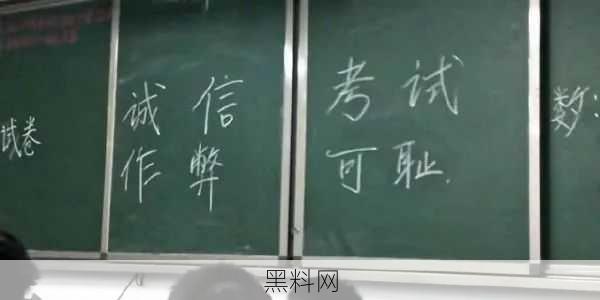 诚信 考试
作弊 可耻.
试卷
数:
黑料网